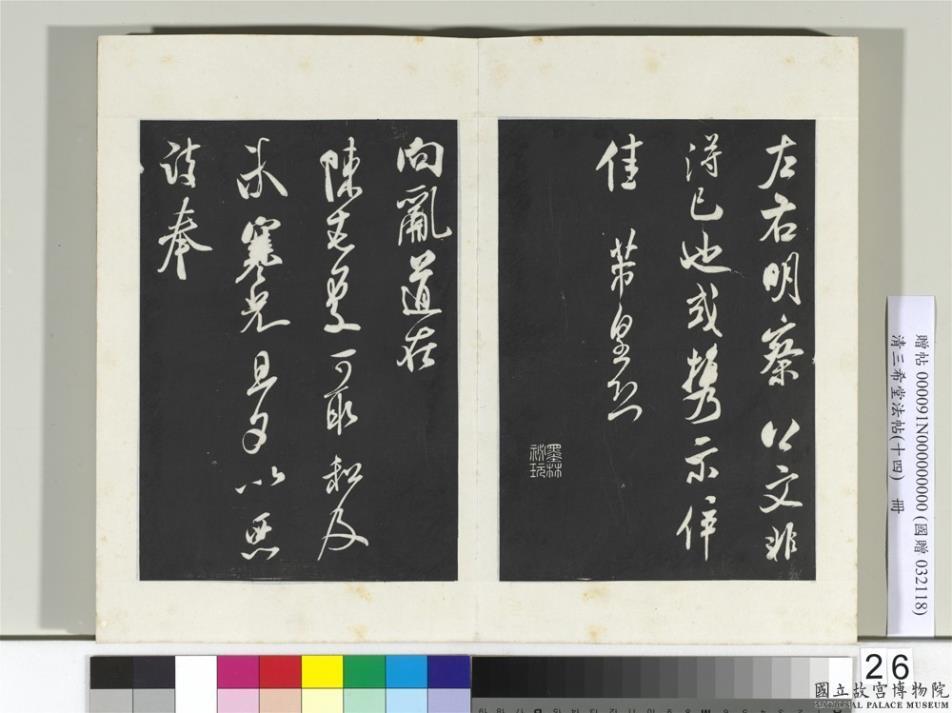 左右明察公文非
得已也或携示倅
佳 芾皇恐
墨林
祕玩
向亂道在
陳老處可取和及
未寒光旦夕以惡
詩奉
贈帖 000091N000000000 (國贈 032118)
清三希堂法帖(十四) 冊
26
國立故宮博物院
NATIONAL PALACE MUSEUM